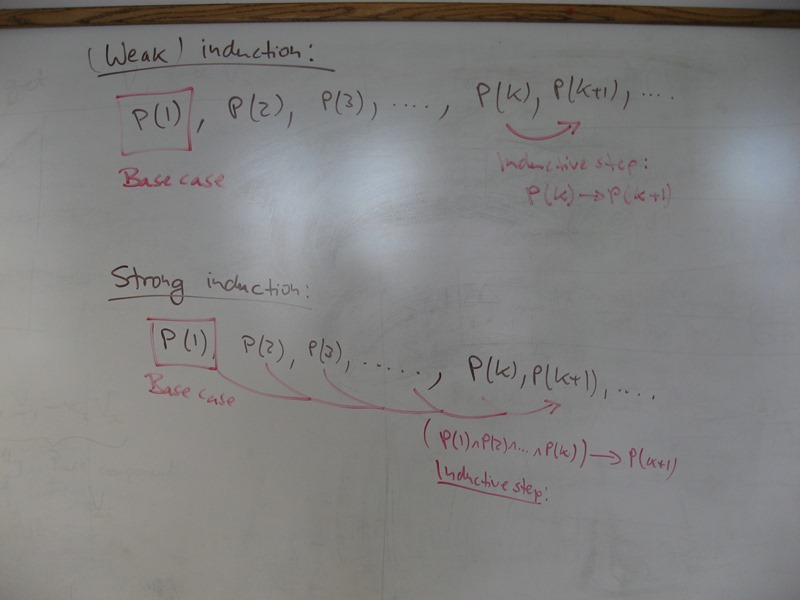 (Weak) induction:
P(1), P(2), P(3), ...., P(k), P(k+1), ....
Base case
Inductive step:
P(k) → P(k+1)
Strong induction:
P(1), P(2), P(3), ......, P(k), P(k+1), ....
Base case
(P(1)∧P(2)∧...∧P(k)) → P(k+1)
Inductive step: